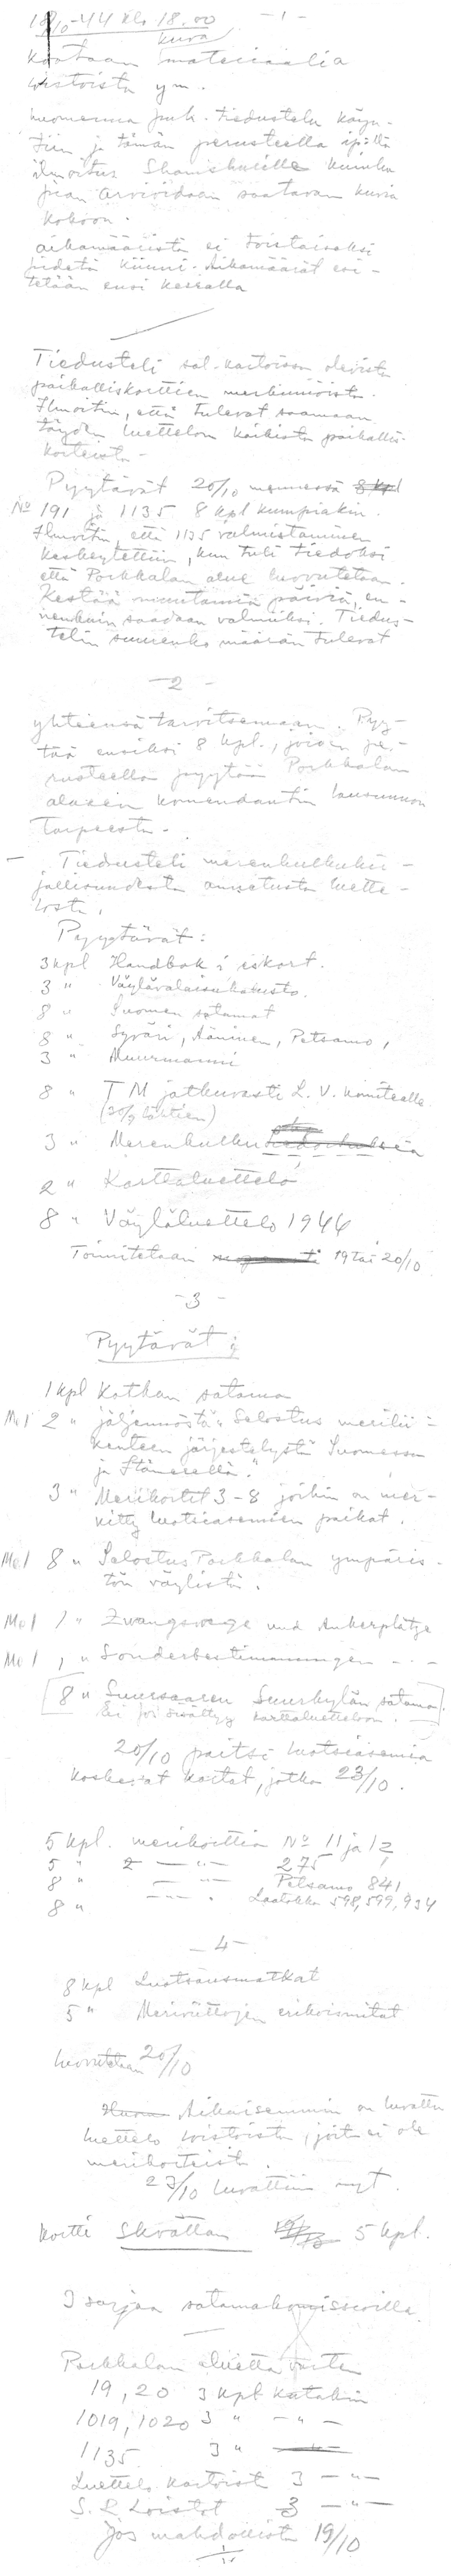 18/10-44 klo 18.00 -1-
kuva
Kootaan materiaalia
loistoista ym.
huomenna puh. tiedustelu käyn-
tiin ja tämän perusteella ip:llä
ilmoitus kuinka
pian arvioidaan saatavan kuvia
kokoon.
aikamääristä ei toistaiseksi
pidetä kiinni. Aikamäärät esi-
tetään ensi keskalla
Tiedusteli sal. kartoissa olevista
paikalliskorttien merkinnöistä.
Ilmoitin, että tulevat saamaan
täyden luettelon kaikista paikallis-
korteista.
Pyytävät 20/10 mennessä 8 kpl
No 191 ja 1135 8 kpl kumpiakin.
Ilmoitin, että 1135 valmistaminen
keskeytettiin, kun tuli tiedoksi
että Porkkalan alue luovutetaan.
Kestää muutamia päiviä, en-
nenkuin saadaan valmiiksi. Tiedus-
telin suurenko määrän tulevat
-2-
yhteensä tarvitsemaan. Pyy-
tää ensiksi 8 kpl., joiden pe-
rusteella pyytää Porkkalan
alueen komendantin lausunnon
tarpeesta.
- Tiedusteli merenkulkukir-
jallisuudesta annetusta luette-
losta.
Pyytävät:
3 kpl Handbok i iskort.
3 " Väylävalaisukatusto.
8 " Suomen satamat
8 " Syväri, Ääninen, Petsamo,
3 " Muurmanni
8 " T M jatkuvasti L. V. komitealle
(20/9 lähtien)
3 " Merenkulku
2 " Karttaluettelo
8 " Väyläluettelo 1944
Toimitetaan 19 tai 20/10
-3-
Pyytävät:
1 kpl Kotkan satama
Mel 2 " jäljennöstä "Selostus merilii-
kenteen järjestelystä Suomessa
ja Itämerellä."
3 " Merikortit 3-8 joihin on mer-
kitty luotsiasemien paikat.
Mel 8 " Selostus Porkkalan ympäris-
tön väylistä.
Mel 1 " Zwangswege und Ankerplätze
Mel 1 " Sonderbestimmungen - - -
[8 " Suursaaren Suurkylän satama.
Ei jos sisältyy karttaluetteloon.]
20/10 paitsi luotsiasemia
koskevat kartat, jotka 23/10.
5 kpl. merikorttia No 11 ja 12
5 " - " - 275
8 " - " - Petsamo 841
8 " - - - . Laatokka 598, 599, 934
-4-
8 kpl Luotsausmatkat
5 " Meriväittojen erikoismitat
luovutetaan 20/10
Aikaisemmin on luvattu
luettelo loistoista, joita ei ole
merikorteista.
23/10 luvattiin nyt.
Kortti Skvättan 5 kpl.
3 sarjaa satamakomissioilla.
Porkkalan aluetta varten
19, 20 3 kpl kutakin
1019, 1020 3 " - " -
1135 3 "
Luettelo kartoist 3 - " -
S. R Loistot 3 - " -
Jos mahdollista 19/10